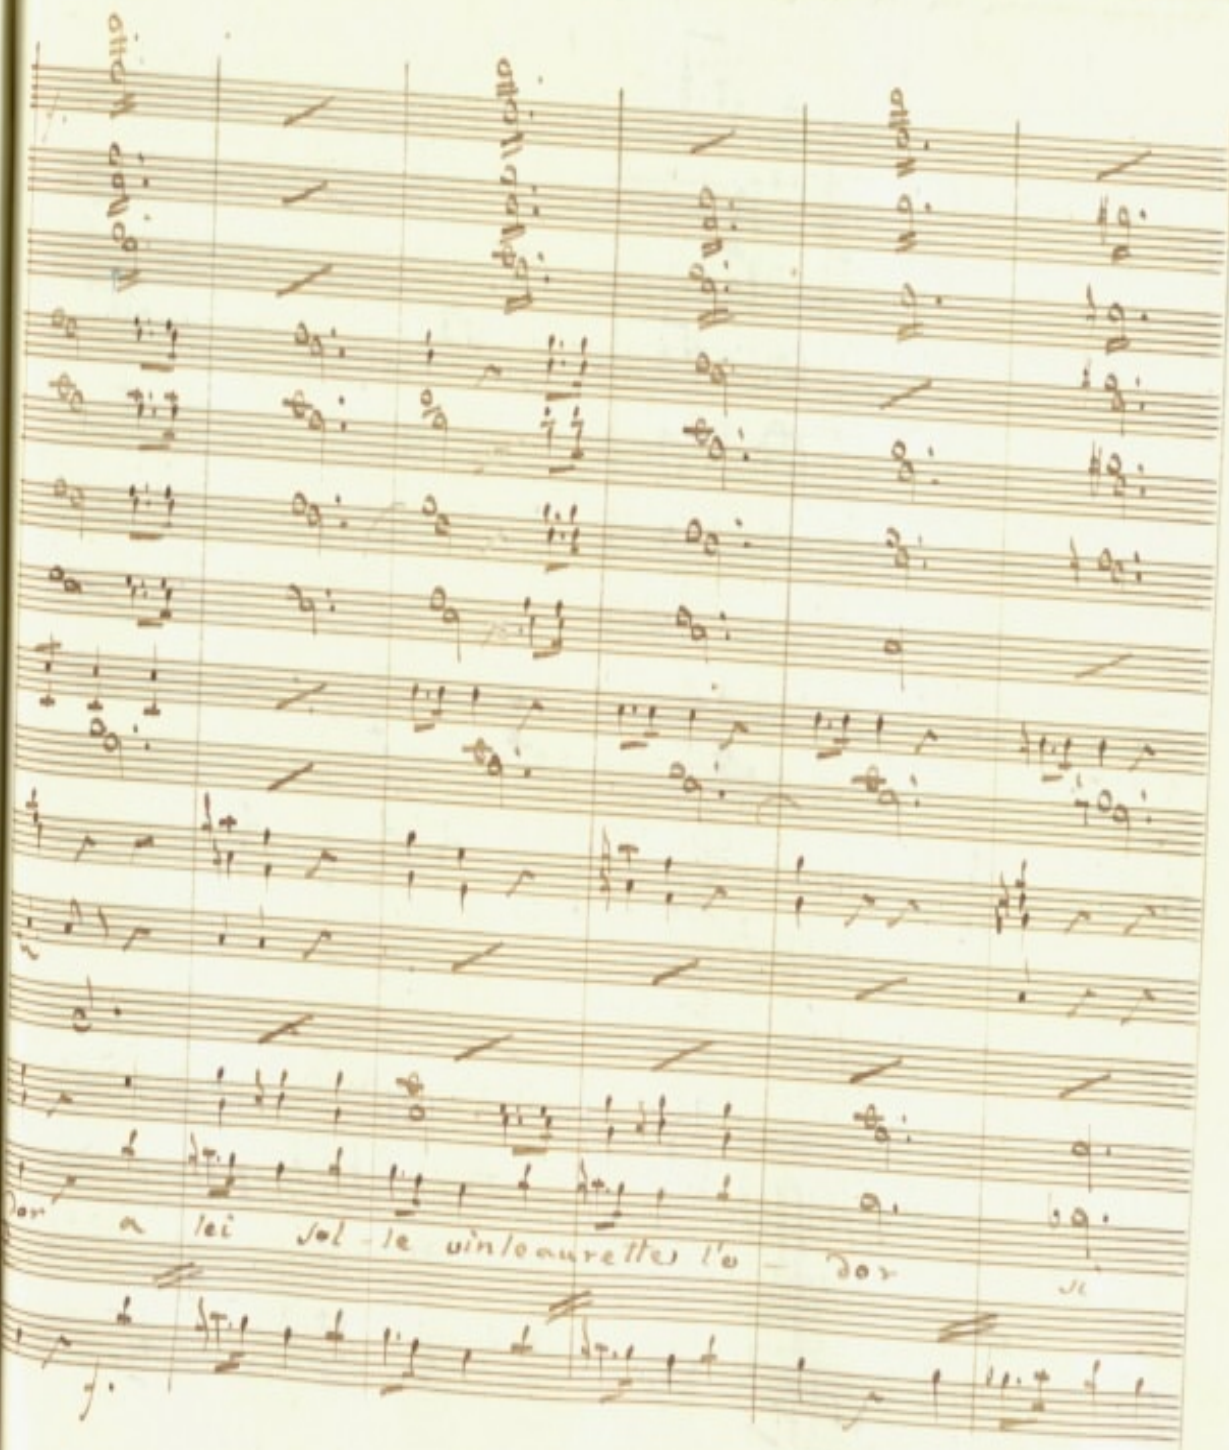 dor a lei sol-le vinleaurettes l'o - dor si
f.